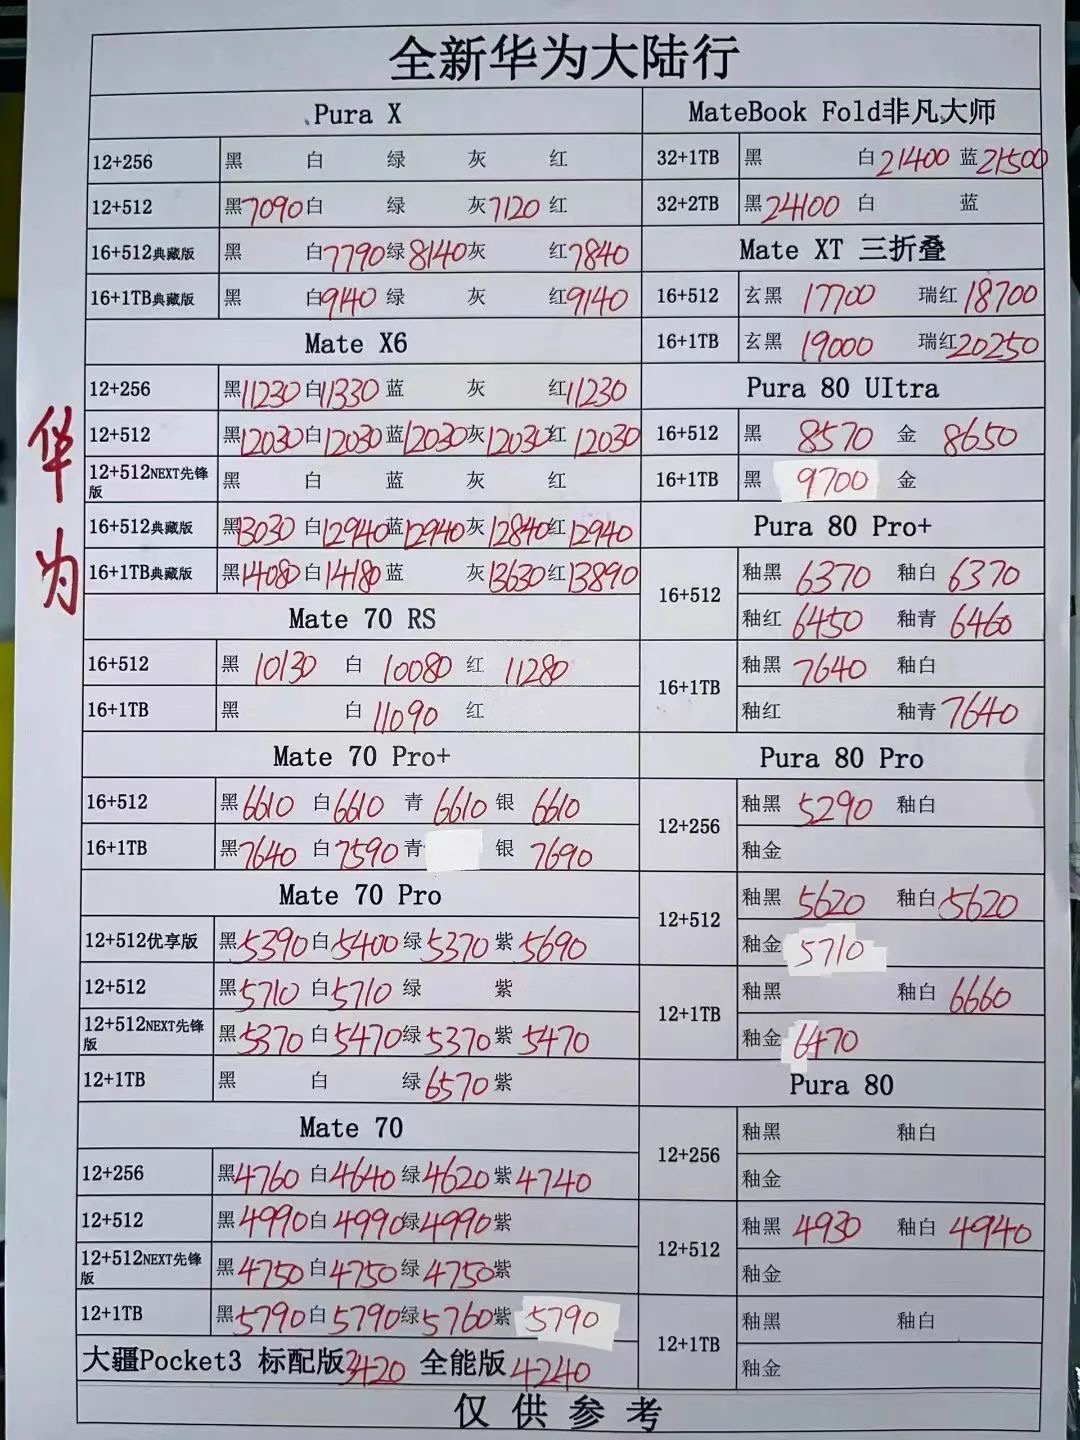 全新华为大陆行
华为
Pura X
12+256 黑 白 绿 灰 红
12+512 黑7090 白 绿 灰7120 红
16+512典藏版 黑 白7790 绿8140 灰 红7840
16+1TB典藏版 黑 白9140 绿 灰 红9140
Mate X6
12+256 黑11230 白11330 蓝 灰 红11230
12+512 黑12030 白12030 蓝12030 灰12030 红12030
12+512NEXT先锋版 黑 白 蓝 灰 红
16+512典藏版 黑13030 白12940 蓝12940 灰12840 红12940
16+1TB典藏版 黑14080 白14180 蓝 灰13630 红13890
Mate 70 RS
16+512 黑 10130 白 10080 红 11280
16+1TB 黑 白 11090 红
Mate 70 Pro+
16+512 黑6610 白6610 青 6610 银 6610
16+1TB 黑7640 白7590 青 银 7690
Mate 70 Pro
12+512优享版 黑5390 白5400 绿5370 紫5690
12+512 黑5710 白5710 绿 紫
12+512NEXT先锋版 黑5370 白5470 绿5370 紫5470
12+1TB 黑 白 绿6570 紫
Mate 70
12+256 黑4760 白4640 绿4620 紫4740
12+512 黑4990 白4990 绿4990 紫
12+512NEXT先锋版 黑4750 白4750 绿4750 紫
12+1TB 黑5790 白5790 绿5760 紫5790
大疆Pocket3 标配版3420 全能版4240
MateBook Fold非凡大师
32+1TB 黑 白21400 蓝21500
32+2TB 黑24100 白 蓝
Mate XT 三折叠
16+512 玄黑 17700 瑞红18700
16+1TB 玄黑 19000 瑞红20250
Pura 80 UItra
16+512 黑 8570 金 8650
16+1TB 黑 9700 金
Pura 80 Pro+
16+512 釉黑 6370 釉白 6370
釉红 6450 釉青 6460
16+1TB 釉黑 7640 釉白
釉红 釉青7640
Pura 80 Pro
12+256 釉黑 5290 釉白
釉金
12+512 釉黑 5620 釉白5620
釉金 5710
12+1TB 釉黑 釉白 6660
釉金 6470
Pura 80
12+256 釉黑 釉白
釉金
12+512 釉黑 4930 釉白 4940
釉金
12+1TB 釉黑 釉白
釉金
仅供参考